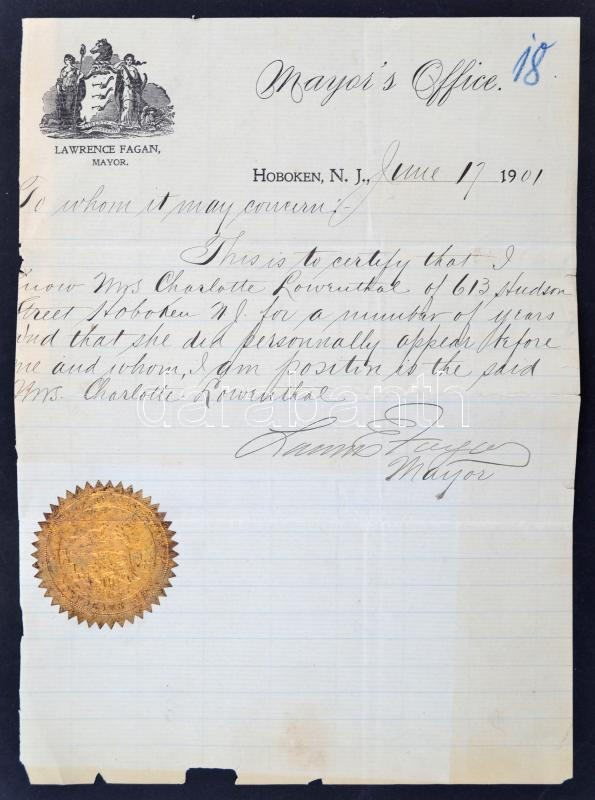 Mayor's Office.
18
LAWRENCE FAGAN,
MAYOR.
HOBOKEN, N. J., June 17 1901
To whom it may concern:-
This is to certify that I
know Mrs Charlotte Lowenthal of 613 Hudson
Street Hoboken NJ. for a number of years
and that she did personnally appear before
me and whom, I am positiv is the said
Mrs. Charlotte Lowenthal
darabanth
Mayor